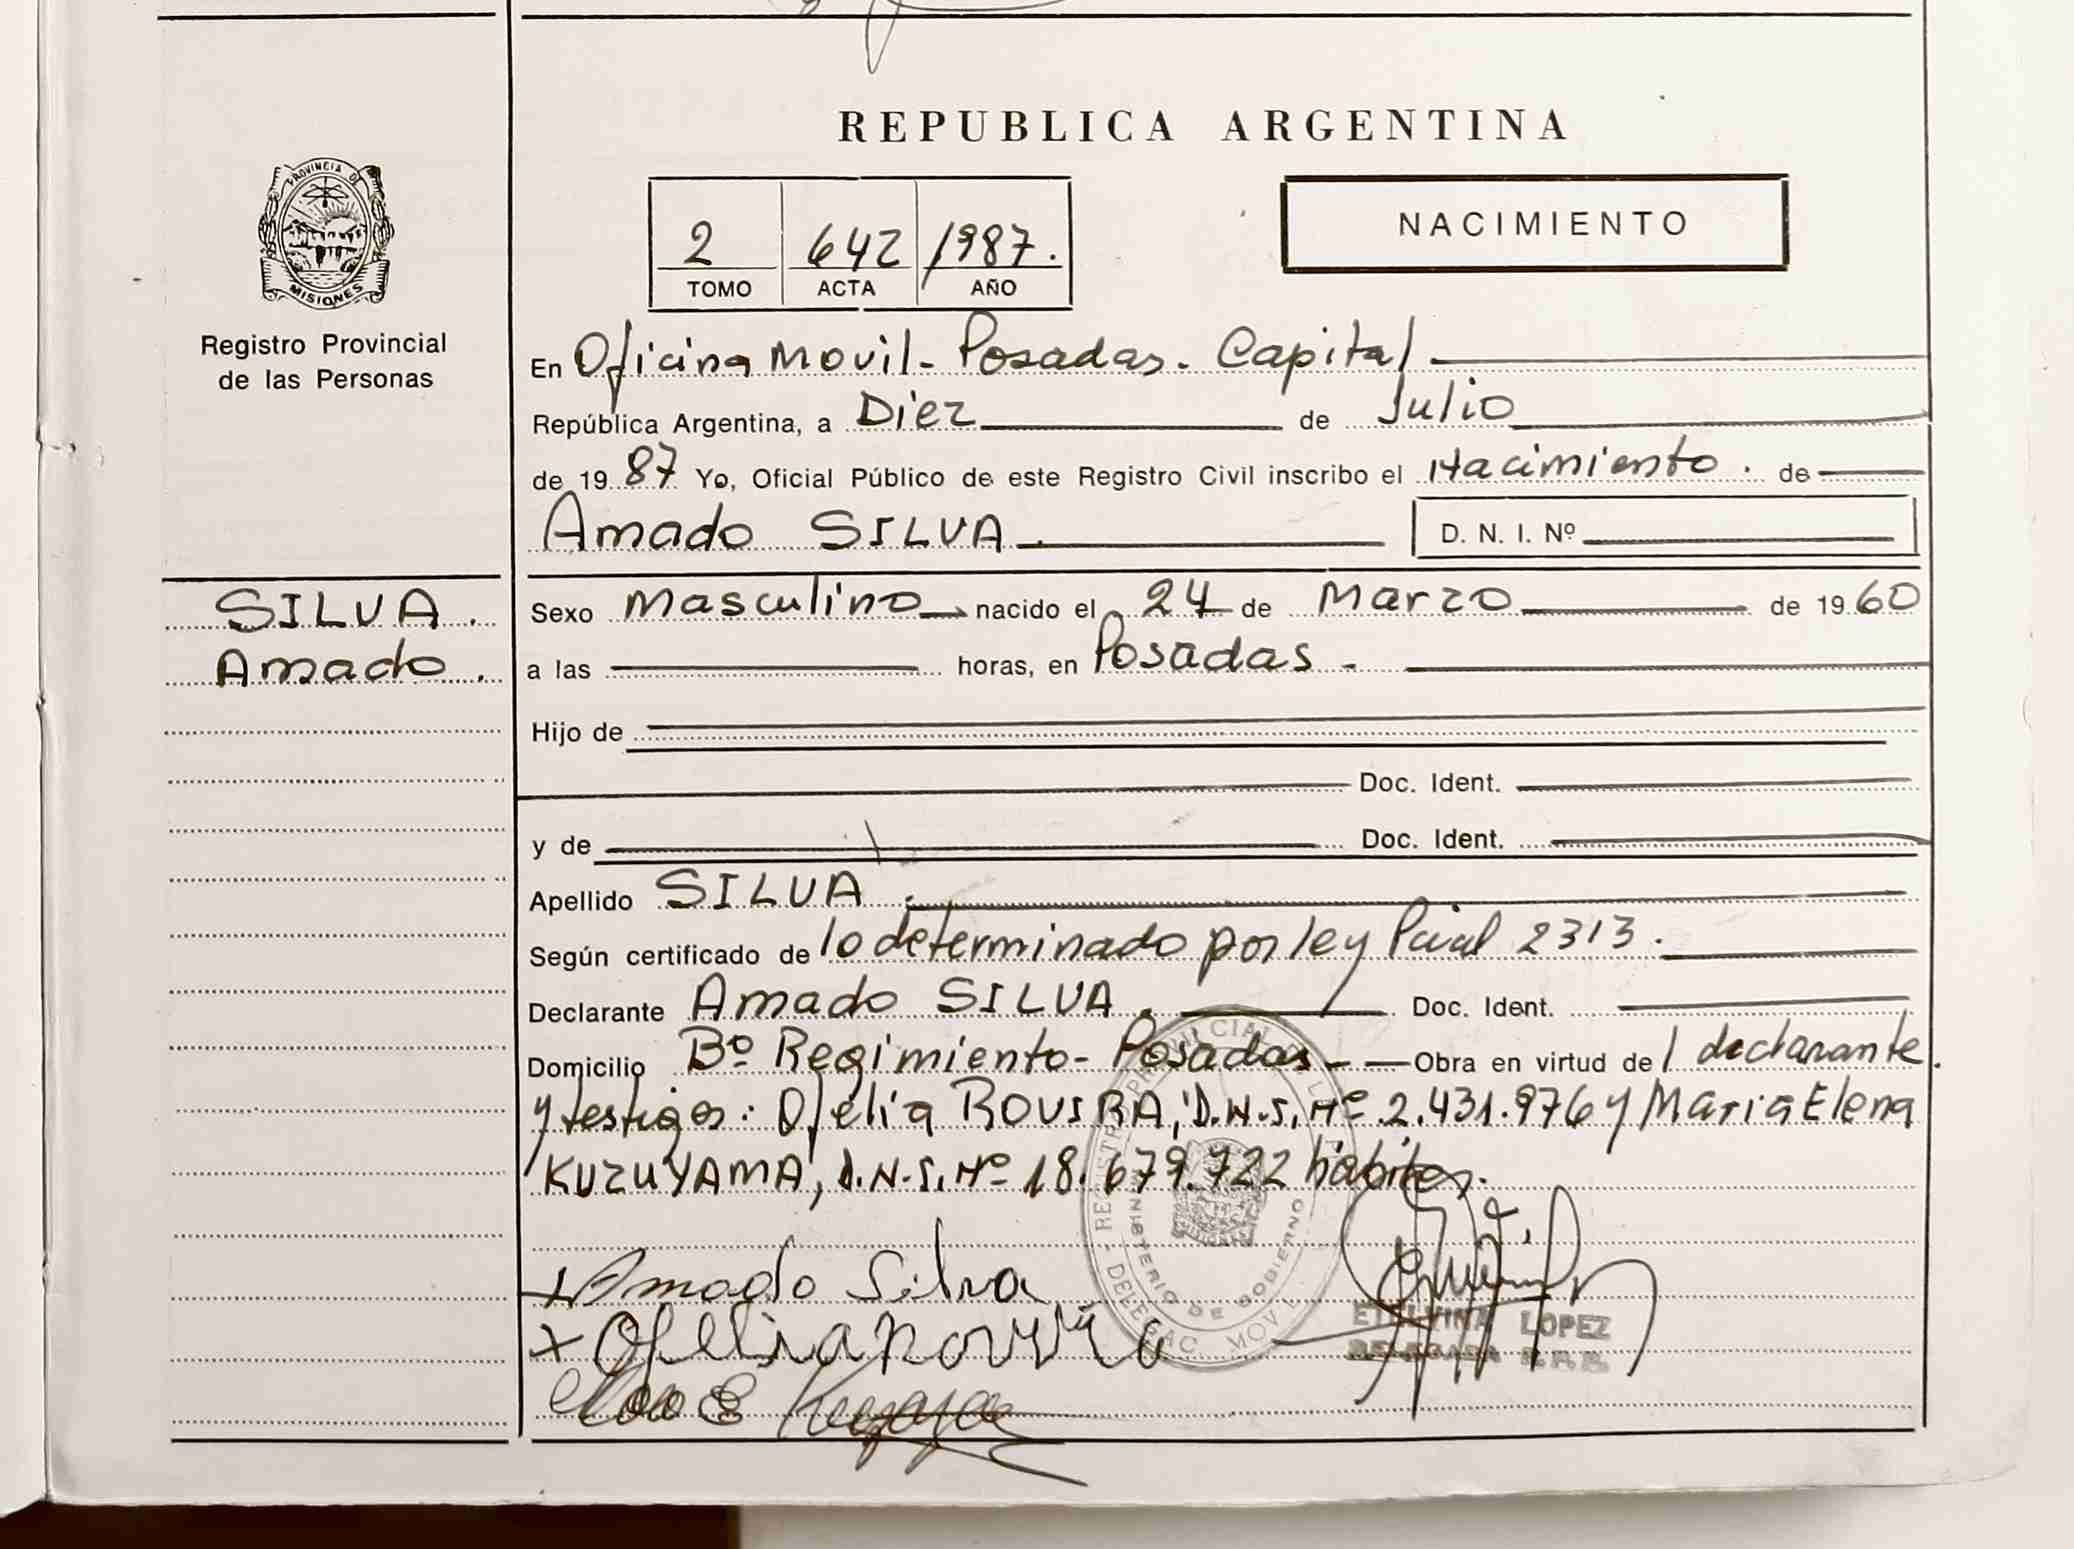 REPUBLICA ARGENTINA
PROVINCIA DE
MISIONES
Registro Provincial
de las Personas
2 642 1987.
TOMO ACTA AÑO
NACIMIENTO
En Oficina Movil - Posadas. Capital
República Argentina, a Diez de Julio
de 19 87 Yo, Oficial Público de este Registro Civil inscribo el Nacimiento. de
Amado SILVA D. N. I. Nº
SILVA.
Amado.
Sexo Masculino nacido el 24 de Marzo de 19 60
a las horas, en Posadas -
Hijo de
Doc. Ident.
y de Doc. Ident.
Apellido SILVA.
Según certificado de lo determinado por ley Pcial 2313.
Declarante Amado SILVA. Doc. Ident.
Domicilio Bº Regimiento - Posadas - Obra en virtud de l declarante
y testigos: Ofelia D.N.I. Nº 2.431.976 y Maria Elena
KUZUYAMA, D.N.I. Nº 18.679.722 hábiles.
REGISTRO PROVINCIAL DE L
MINISTERIO DE GOBIERNO
DELEGAC MOVIL
Amado Silva
Ofelia
ETELVINA LOPEZ
DELEGADA R.P.P.